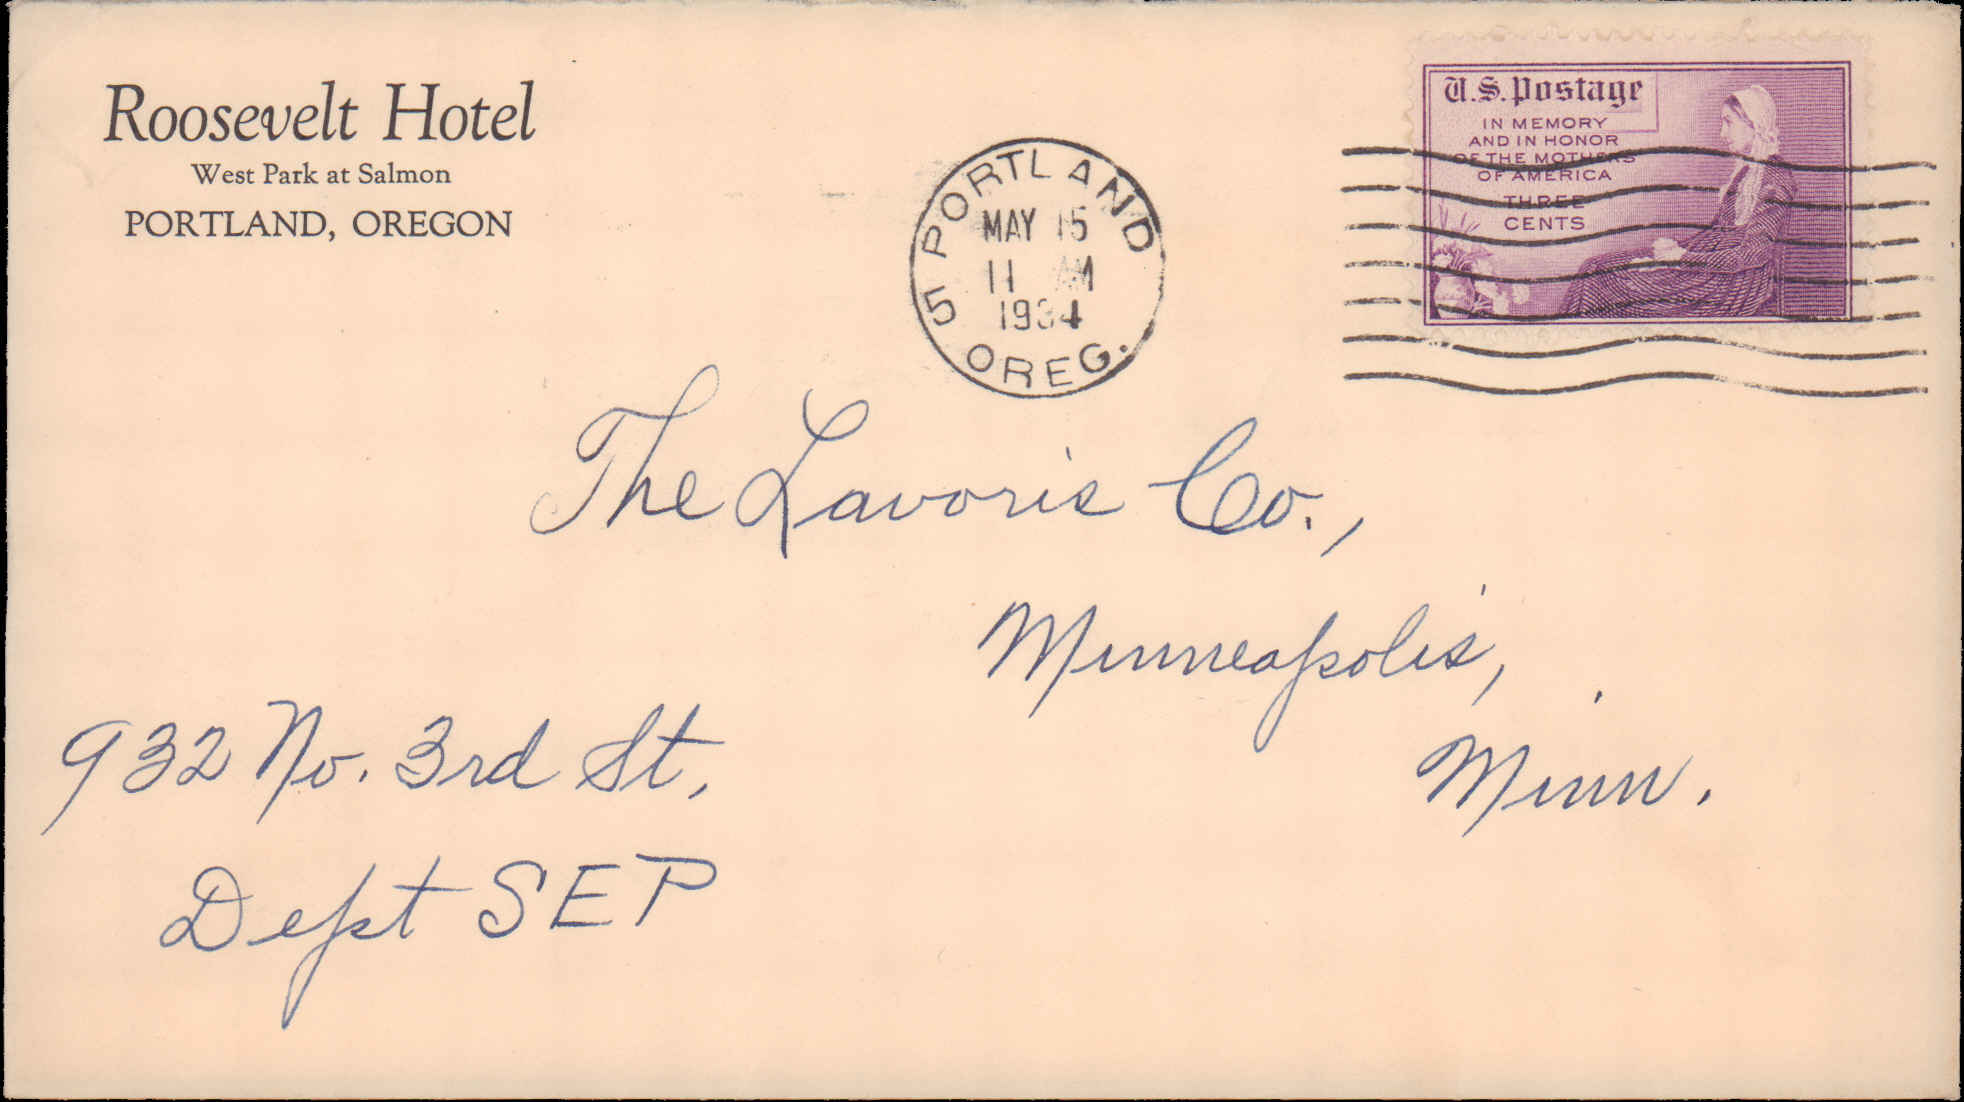 Roosevelt Hotel
West Park at Salmon
PORTLAND, OREGON
PORTLAND
MAY 15
11 AM
1934
5
OREG.
U.S. Postage
IN MEMORY
AND IN HONOR
OF THE MOTHERS
OF AMERICA
THREE
CENTS
The Lavoris Co.,
Minneapolis,
Minn.
932 No. 3rd St,
Dept SEP